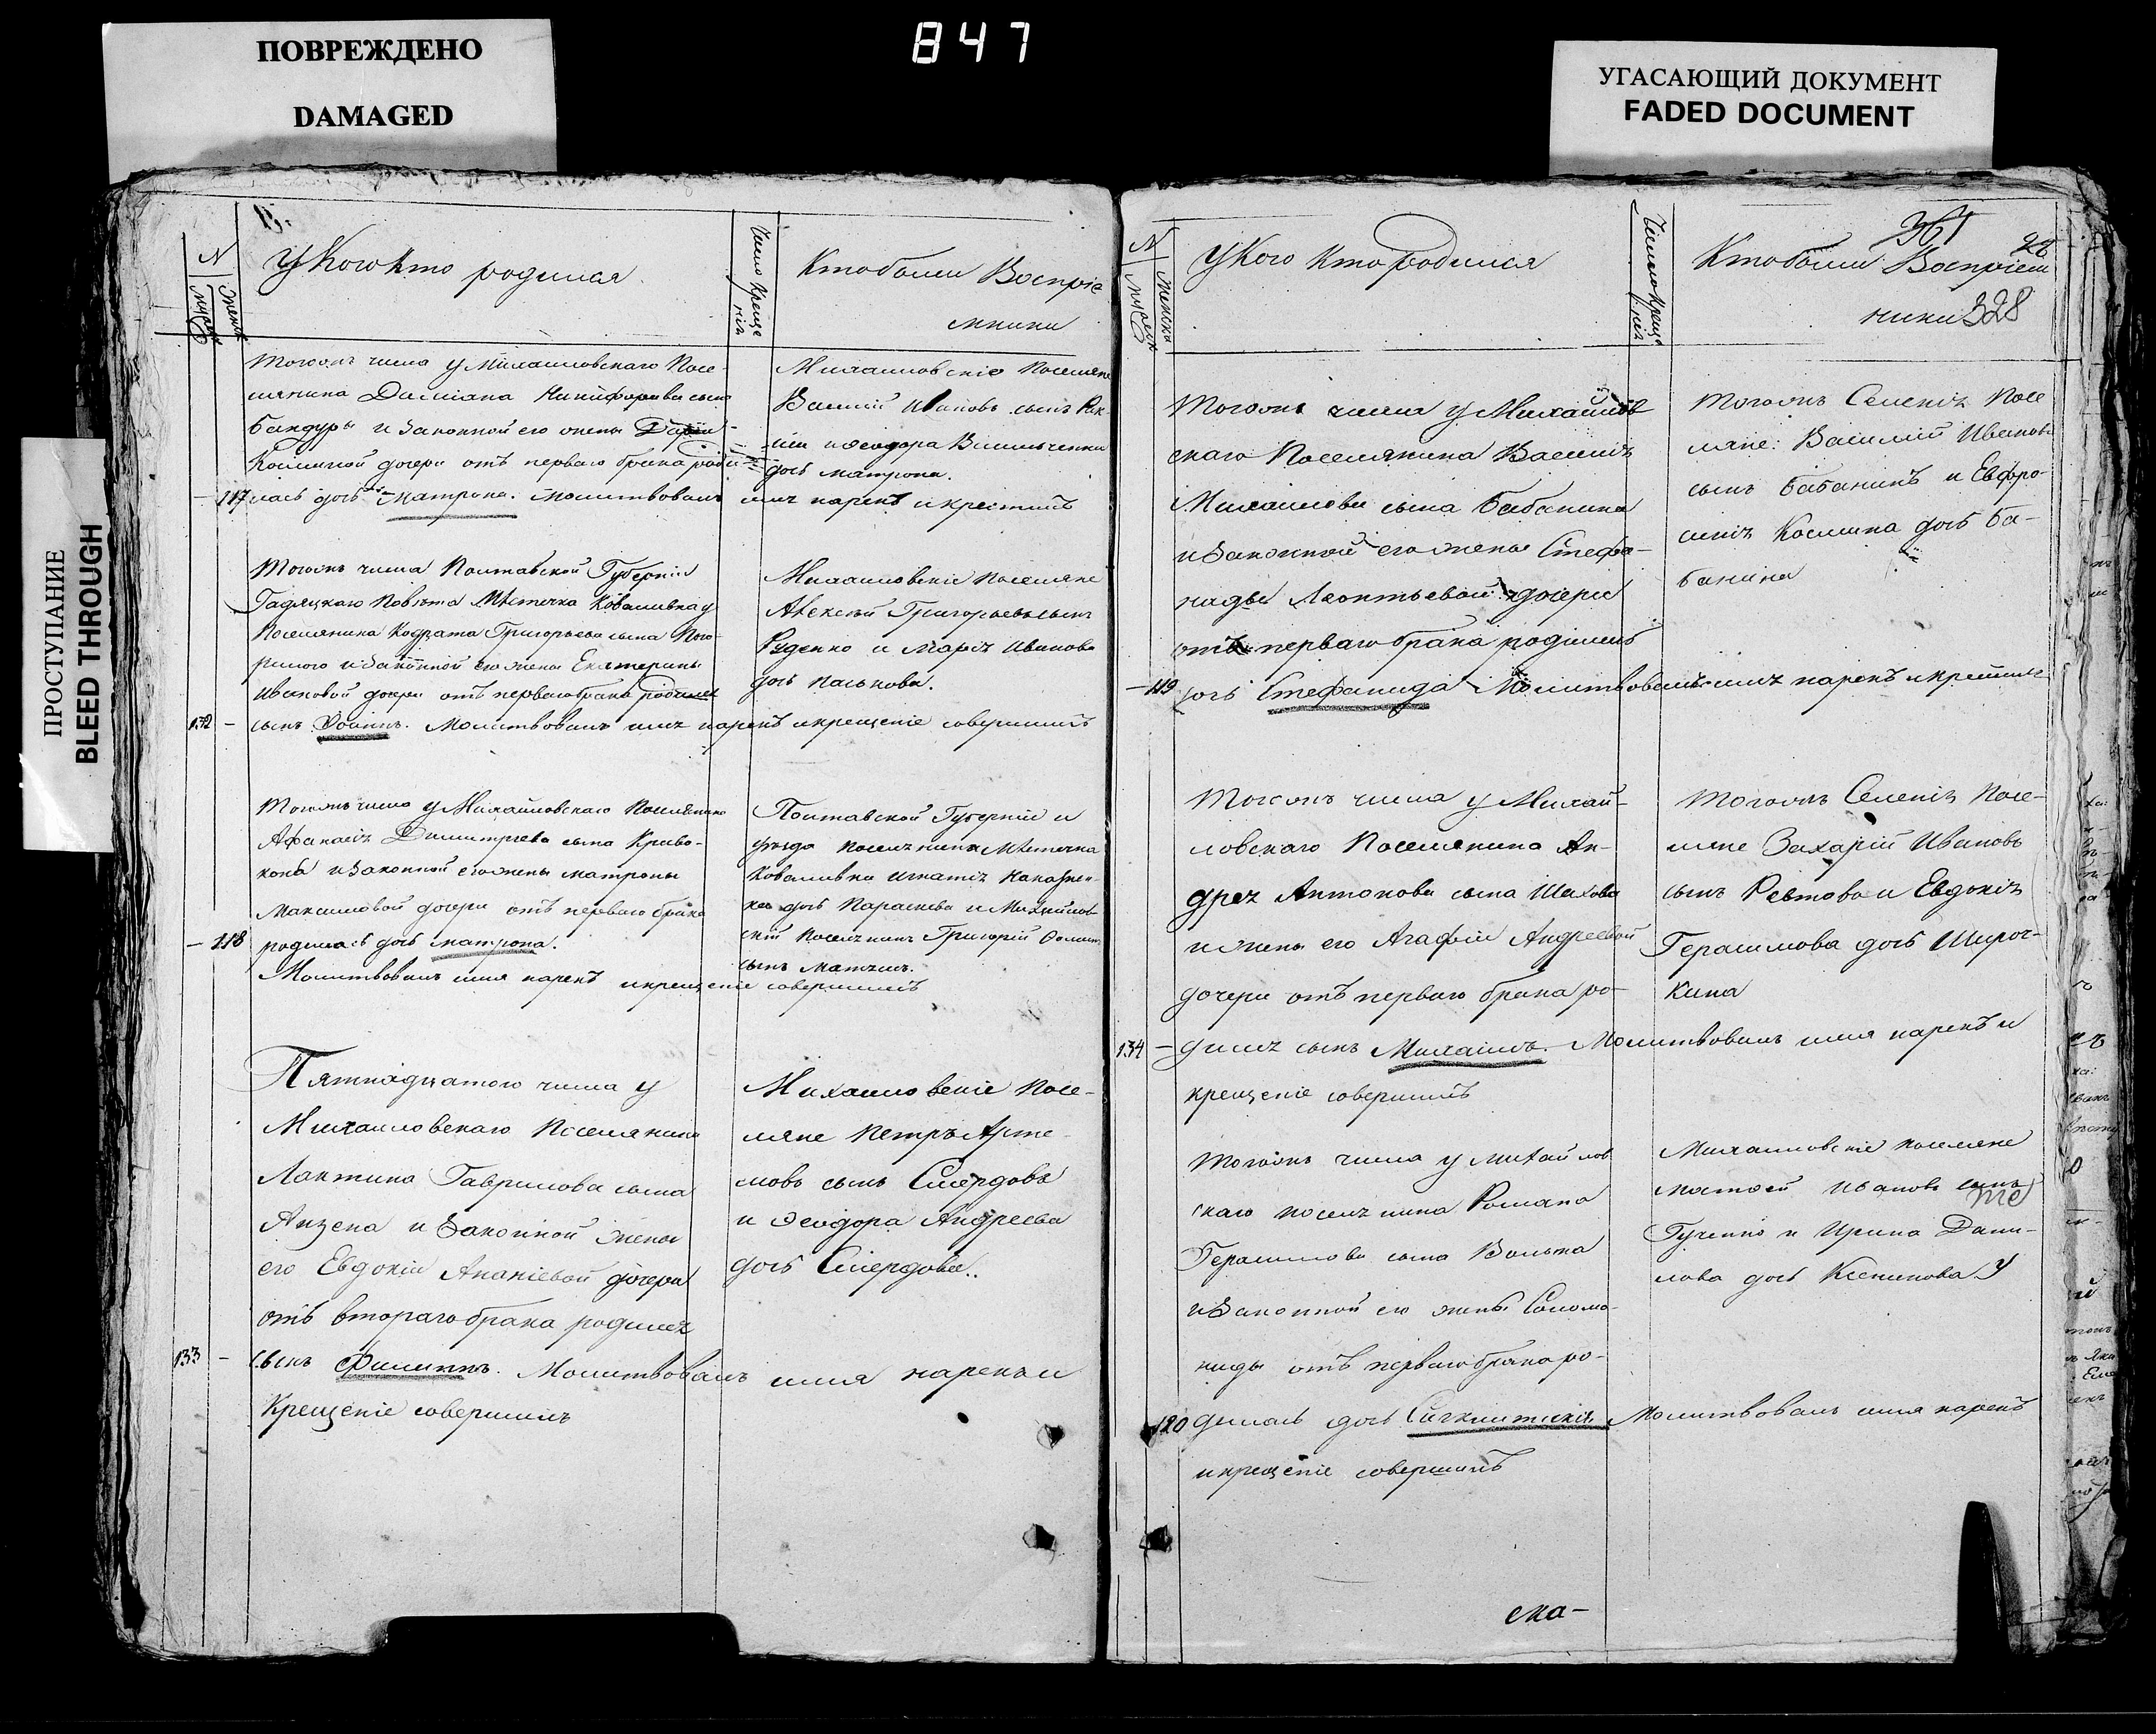 847
ПОВРЕЖДЕНО
DAMAGED
УГАСАЮЩИЙ ДОКУМЕНТ
FADED DOCUMENT
ПРОСТУПАНИЕ
BLEED THROUGH
N
У Кого кто родился
Число Креще
нія
Кто были Воспріе
мники
Тогожъ числа у Михаиловскаго Посе-
лянина Даміана Никифорова сына
Бандуры и Законной его жены Дарьи
Косминой дочери отъ перваго брака роди-
117 лась дочь Матрона. Молитвовалъ имя нарекъ и крестилъ
Михаиловскіе Поселяне
Василій Ивановъ сынъ
и Ѳеодора Васильченки
дочь Матрона.
Тогожъ числа Полтавской Губерніи
Гадяцкаго Повѣта Мѣстечка Коваливка у
Поселянина Кодрата Григорьева сына
и Законной его жены Екатерины
Ивановой дочери отъ перваго брака родился
132 - сынъ Іоаннъ. Молитвовалъ имя нарекъ и крещеніе совершилъ
Михаиловскіе Поселяне
Алексѣй Григорьевъ сынъ
Руденко и Марія Иванова
дочь Панькова.
Тогожъ числа у Михайловскаго Поселянина
Афанасія Димитріева сына Криво-
коня и Законной его жены Матроны
Максимовой дочери отъ перваго брака
- 118 родилась дочь Матрона.
Молитвовалъ имя нарекъ и крещеніе совершилъ
Полтавской Губерніи и
уѣзда поселянина Мѣстечка
Коваливки Игнатія
дочь Параскева и Михайлов-
скій Поселянинъ Григорій
сынъ
Пятнадцатого числа у
Михаиловскаго Поселянина
Лактина Гаврилова сына
Анзена и Законной жены
его Евдокіи Ананіевой дочери
отъ втораго брака родился
133 - сынъ Филиппъ. Молитвовалъ имя нарекъ и
Крещеніе совершилъ
Михаиловскіе Посе-
ляне Петръ Арте-
мовъ сынъ Смердовъ
и Ѳеодора Андреева
дочь Смердова..
361
328
N
У Кого кто родился
Число Креще
нія
Кто были Воспріем
ники
Тогожъ числа у Михайлов
скаго Поселянина Василія
Михаилова сына Бабанина
и Законной его жены Стефа-
ниды Леонтьевой дочери
отъ перваго брака родилась
- 119 дочь Стефанида Молитвовалъ имя нарекъ и крестилъ
Тогожъ Селенія Посе
ляне: Василій Ивановъ
сынъ Бабанинъ и Евфро-
синія Космина дочь Ба-
банина
Тогожъ числа у Михай-
ловскаго Поселянина Ан-
дрея Антонова сына Шахова
и жены его Агафіи Андреевой
дочери отъ перваго брака ро-
134 - дился сынъ Михаилъ. Молитвовалъ имя нарекъ и
крещеніе совершилъ
Тогожъ Селенія Посе-
ляне Захарій Ивановъ
сынъ Ревтова и Евдокія
Герасимова дочь Широч-
кина
Тогожъ числа у Михайлов
скаго поселянина Романа
Герасимова сына Волика
и Законной его жены Соломо-
ниды отъ перваго брака ро-
120 дилась дочь Сигклитикія. Молитвовалъ имя нарекъ
и крещеніе совершилъ
Михаиловскіе поселяне
Матвей Ивановъ сынъ
Гученко и Ирина Дани-
лова дочь
ска-